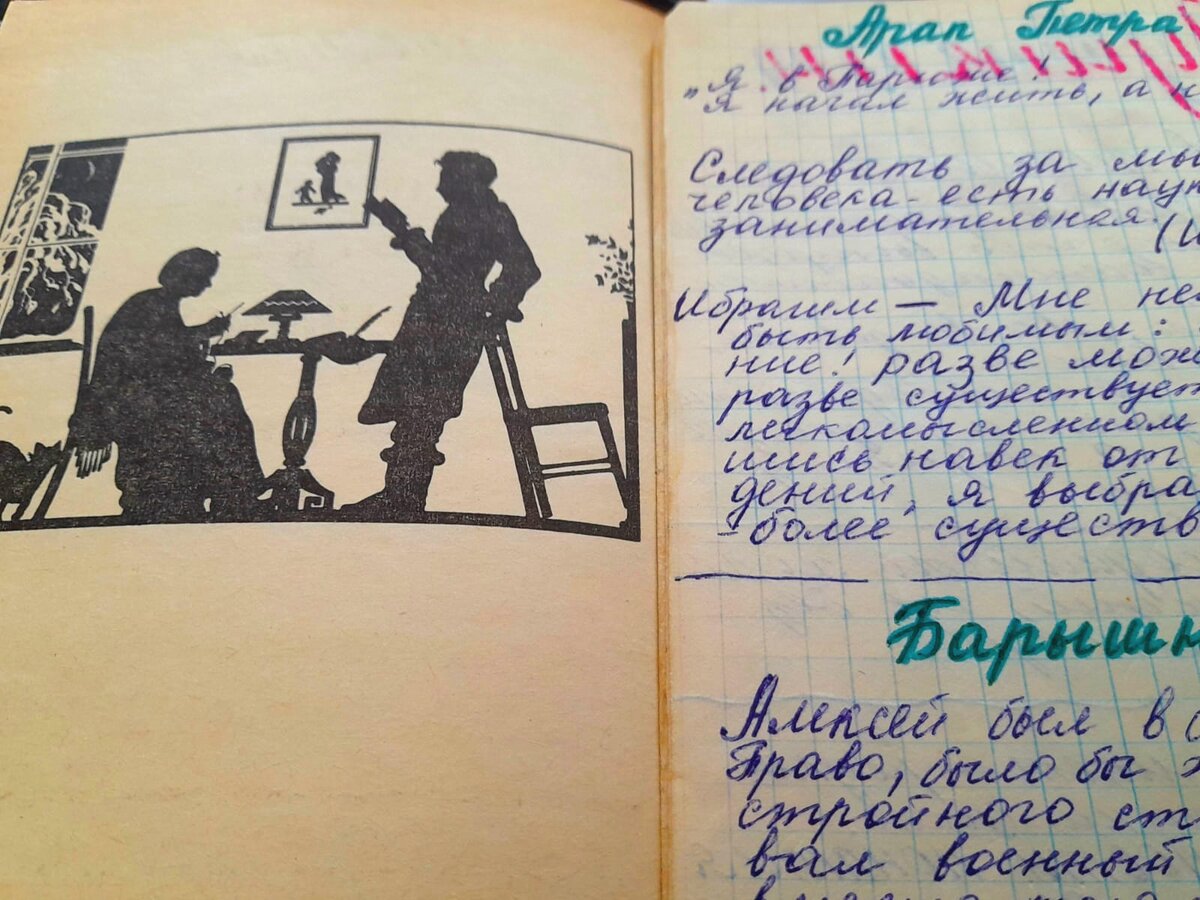 Арап Петра
„Я в Париже!
Я начал жить, а н
Следовать за мы
человека - есть наук
занимательная.
(И
Ибрагим — Мне не
быть любимым:
ние! разве мож
разве существует
легкомысленном
шись навек от
дений, я выбра
- более существ
Барышн
Алексей был в с
Право, было бы ж
стройного ст
вал военный